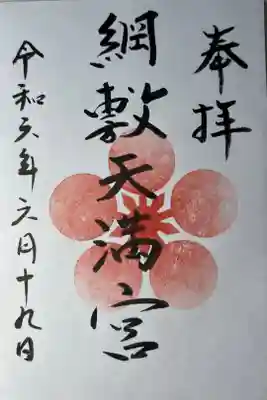 奉拝
綱敷天満宮
令和六年六月十九日